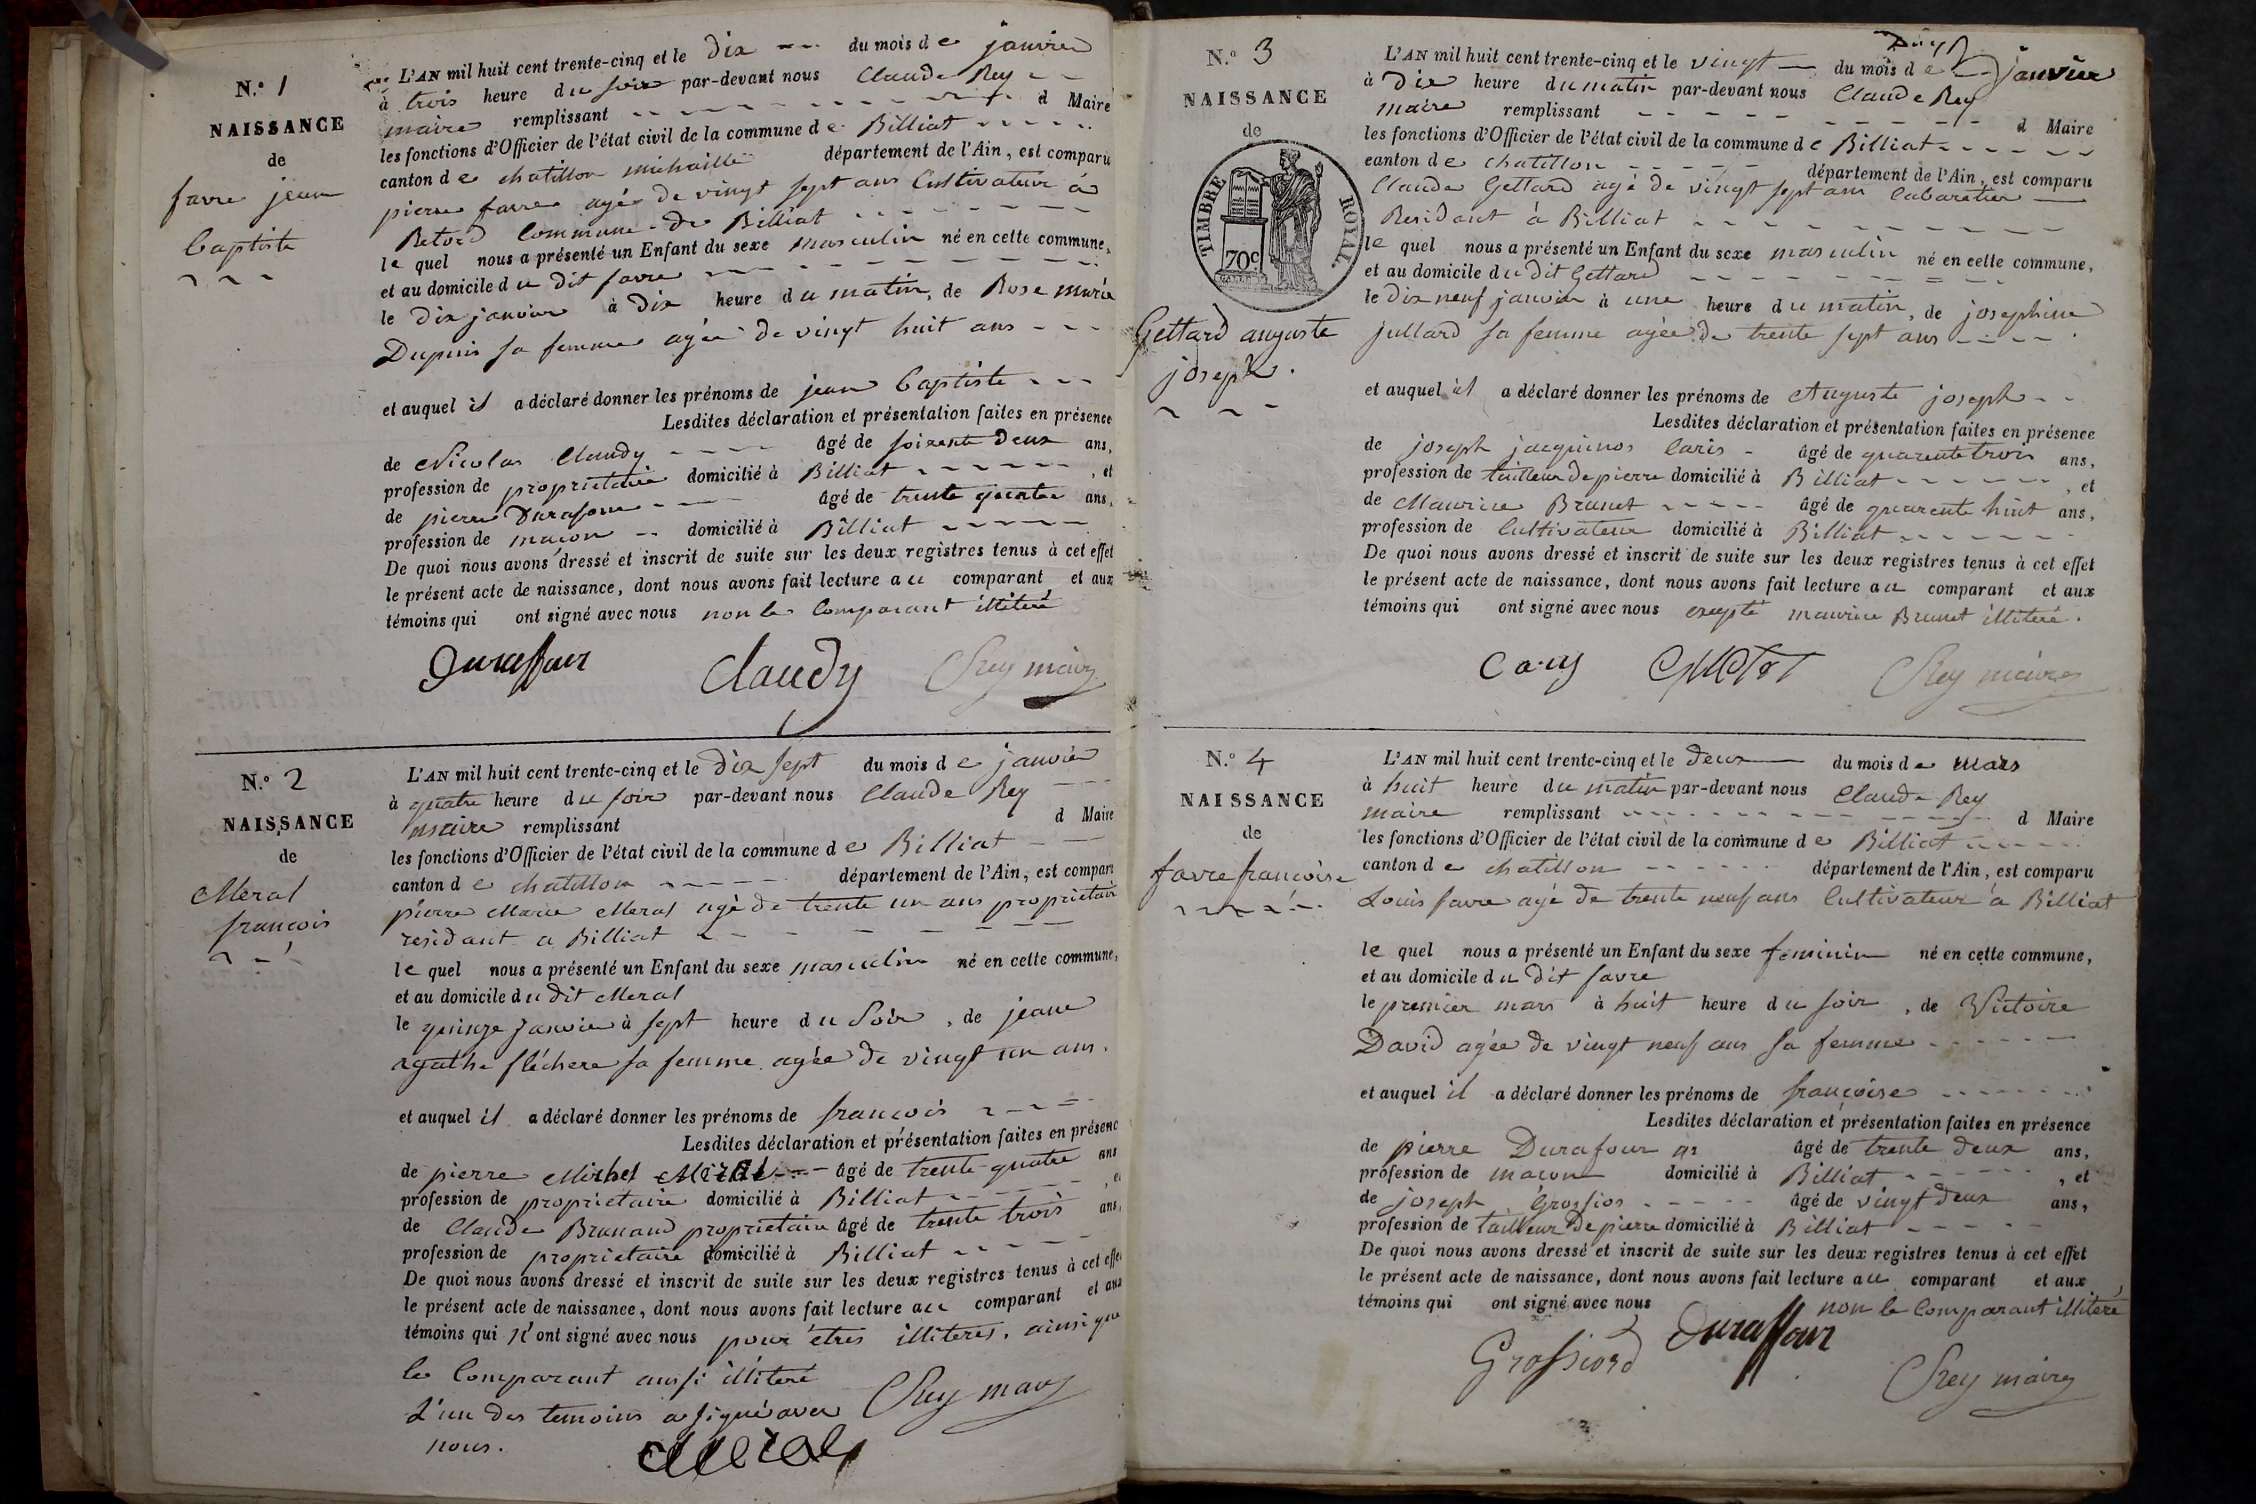 N.º 1
NAISSANCE
de
favre jean
Baptiste
L'AN mil huit cent trente-cinq et le dix du mois de janvier
à trois heure du soir par-devant nous Claude Rey
maire remplissant d Maire
les fonctions d'Officier de l'état civil de la commune de Billiat
canton de chatillon michaille département de l'Ain, est comparu
pierre favre agé de vingt sept ans Cultivateur à
Retord Commune de Billiat
le quel nous a présenté un Enfant du sexe masculin né en cette commune,
et au domicile du dit favre
le dix janvier à dix heure du matin, de Rose marie
Dupuis sa femme agée de vingt huit ans
et auquel il a déclaré donner les prénoms de jean Baptiste
Lesdites déclaration et présentation faites en présence
de Nicolas Claudy âgé de soixente deux ans,
profession de proprietaire domicilié à Billiat , et
de pierre Durafour âgé de trente ans,
profession de macon domicilié à Billiat
De quoi nous avons dressé et inscrit de suite sur les deux registres tenus à cet effet
le présent acte de naissance, dont nous avons fait lecture au comparant et aux
témoins qui ont signé avec nous non le Comparant illiteré
Duraffour Claudy Rey maire
N.º 2
NAISSANCE
de
Meral
francois
L'AN mil huit cent trente-cinq et le dix sept du mois de janvier
à quatre heure du soir par-devant nous Claude Rey
maire remplissant d Maire
les fonctions d'Officier de l'état civil de la commune de Billiat
canton de chatillon département de l'Ain, est comparu
pierre Marie Meral agé de trente un ans proprietair
residant a Billiat
le quel nous a présenté un Enfant du sexe masculin né en cette commune,
et au domicile du dit Meral
le quinze janvier à sept heure du soir, de jeane
agathe fléchere sa femme agée de vingt un ans.
et auquel il a déclaré donner les prénoms de francois
Lesdites déclaration et présentation faites en présenc
de pierre Michel Meral âgé de trente quatre ans
profession de proprietaire domicilié à Billiat , et
de Claude Brunand proprietaire âgé de trente trois ans,
profession de proprietaire domicilié à Billiat
De quoi nous avons dressé et inscrit de suite sur les deux registres tenus à cet effet
le présent acte de naissance, dont nous avons fait lecture au comparant et aux
témoins qui n'ont signé avec nous pour êtres illiteres, ainsi que
le Comparant aussi illiteré
L'un des temoins a signé avec Rey maire
nous. Meral
N.º 3
NAISSANCE
de
TIMBRE ROYAL
70c
Gettard auguste
joseph.
L'AN mil huit cent trente-cinq et le vingt du mois de janvier
à dix heure du matin par-devant nous Claude Rey
maire remplissant d Maire
les fonctions d'Officier de l'état civil de la commune de Billiat
canton de chatillon département de l'Ain, est comparu
Claude Gettard agé de vingt sept ans Cabaretier
Residant à Billiat
le quel nous a présenté un Enfant du sexe masculin né en cette commune,
et au domicile du dit Gettard
le dix neuf janvier à une heure du matin, de josephine
jullard sa femme agée de trente sept ans
et auquel il a déclaré donner les prénoms de Auguste joseph
Lesdites déclaration et présentation faites en présence
de joseph jacquinos Caris âgé de quarente trois ans,
profession de tailleur de pierre domicilié à Billiat , et
de Maurice Brunet âgé de quarente huit ans,
profession de Cultivateur domicilié à Billiat
De quoi nous avons dressé et inscrit de suite sur les deux registres tenus à cet effet
le présent acte de naissance, dont nous avons fait lecture au comparant et aux
témoins qui ont signé avec nous excepté maurice Brunet illiteré.
Rey maire
N.º 4
NAISSANCE
de
favre francoise
L'AN mil huit cent trente-cinq et le deux du mois de mars
à huit heure du matin par-devant nous Claude Rey
maire remplissant d Maire
les fonctions d'Officier de l'état civil de la commune de Billiat
canton de chatillon département de l'Ain, est comparu
Louis favre agé de trente neuf ans Cultivateur à Billiat
le quel nous a présenté un Enfant du sexe feminin né en cette commune,
et au domicile du dit favre
le premier mars à huit heure du soir, de Victoire
David agée de vingt neuf ans sa femme
et auquel il a déclaré donner les prénoms de françoise
Lesdites déclaration et présentation faites en présence
de pierre Durafour âgé de trente deux ans,
profession de macon domicilié à Billiat , et
de joseph Grossior âgé de vingt deux ans,
profession de tailleur de pierre domicilié à Billiat
De quoi nous avons dressé et inscrit de suite sur les deux registres tenus à cet effet
le présent acte de naissance, dont nous avons fait lecture au comparant et aux
témoins qui ont signé avec nous non le Comparant illiteré
Grossiord Duraffour Rey maire